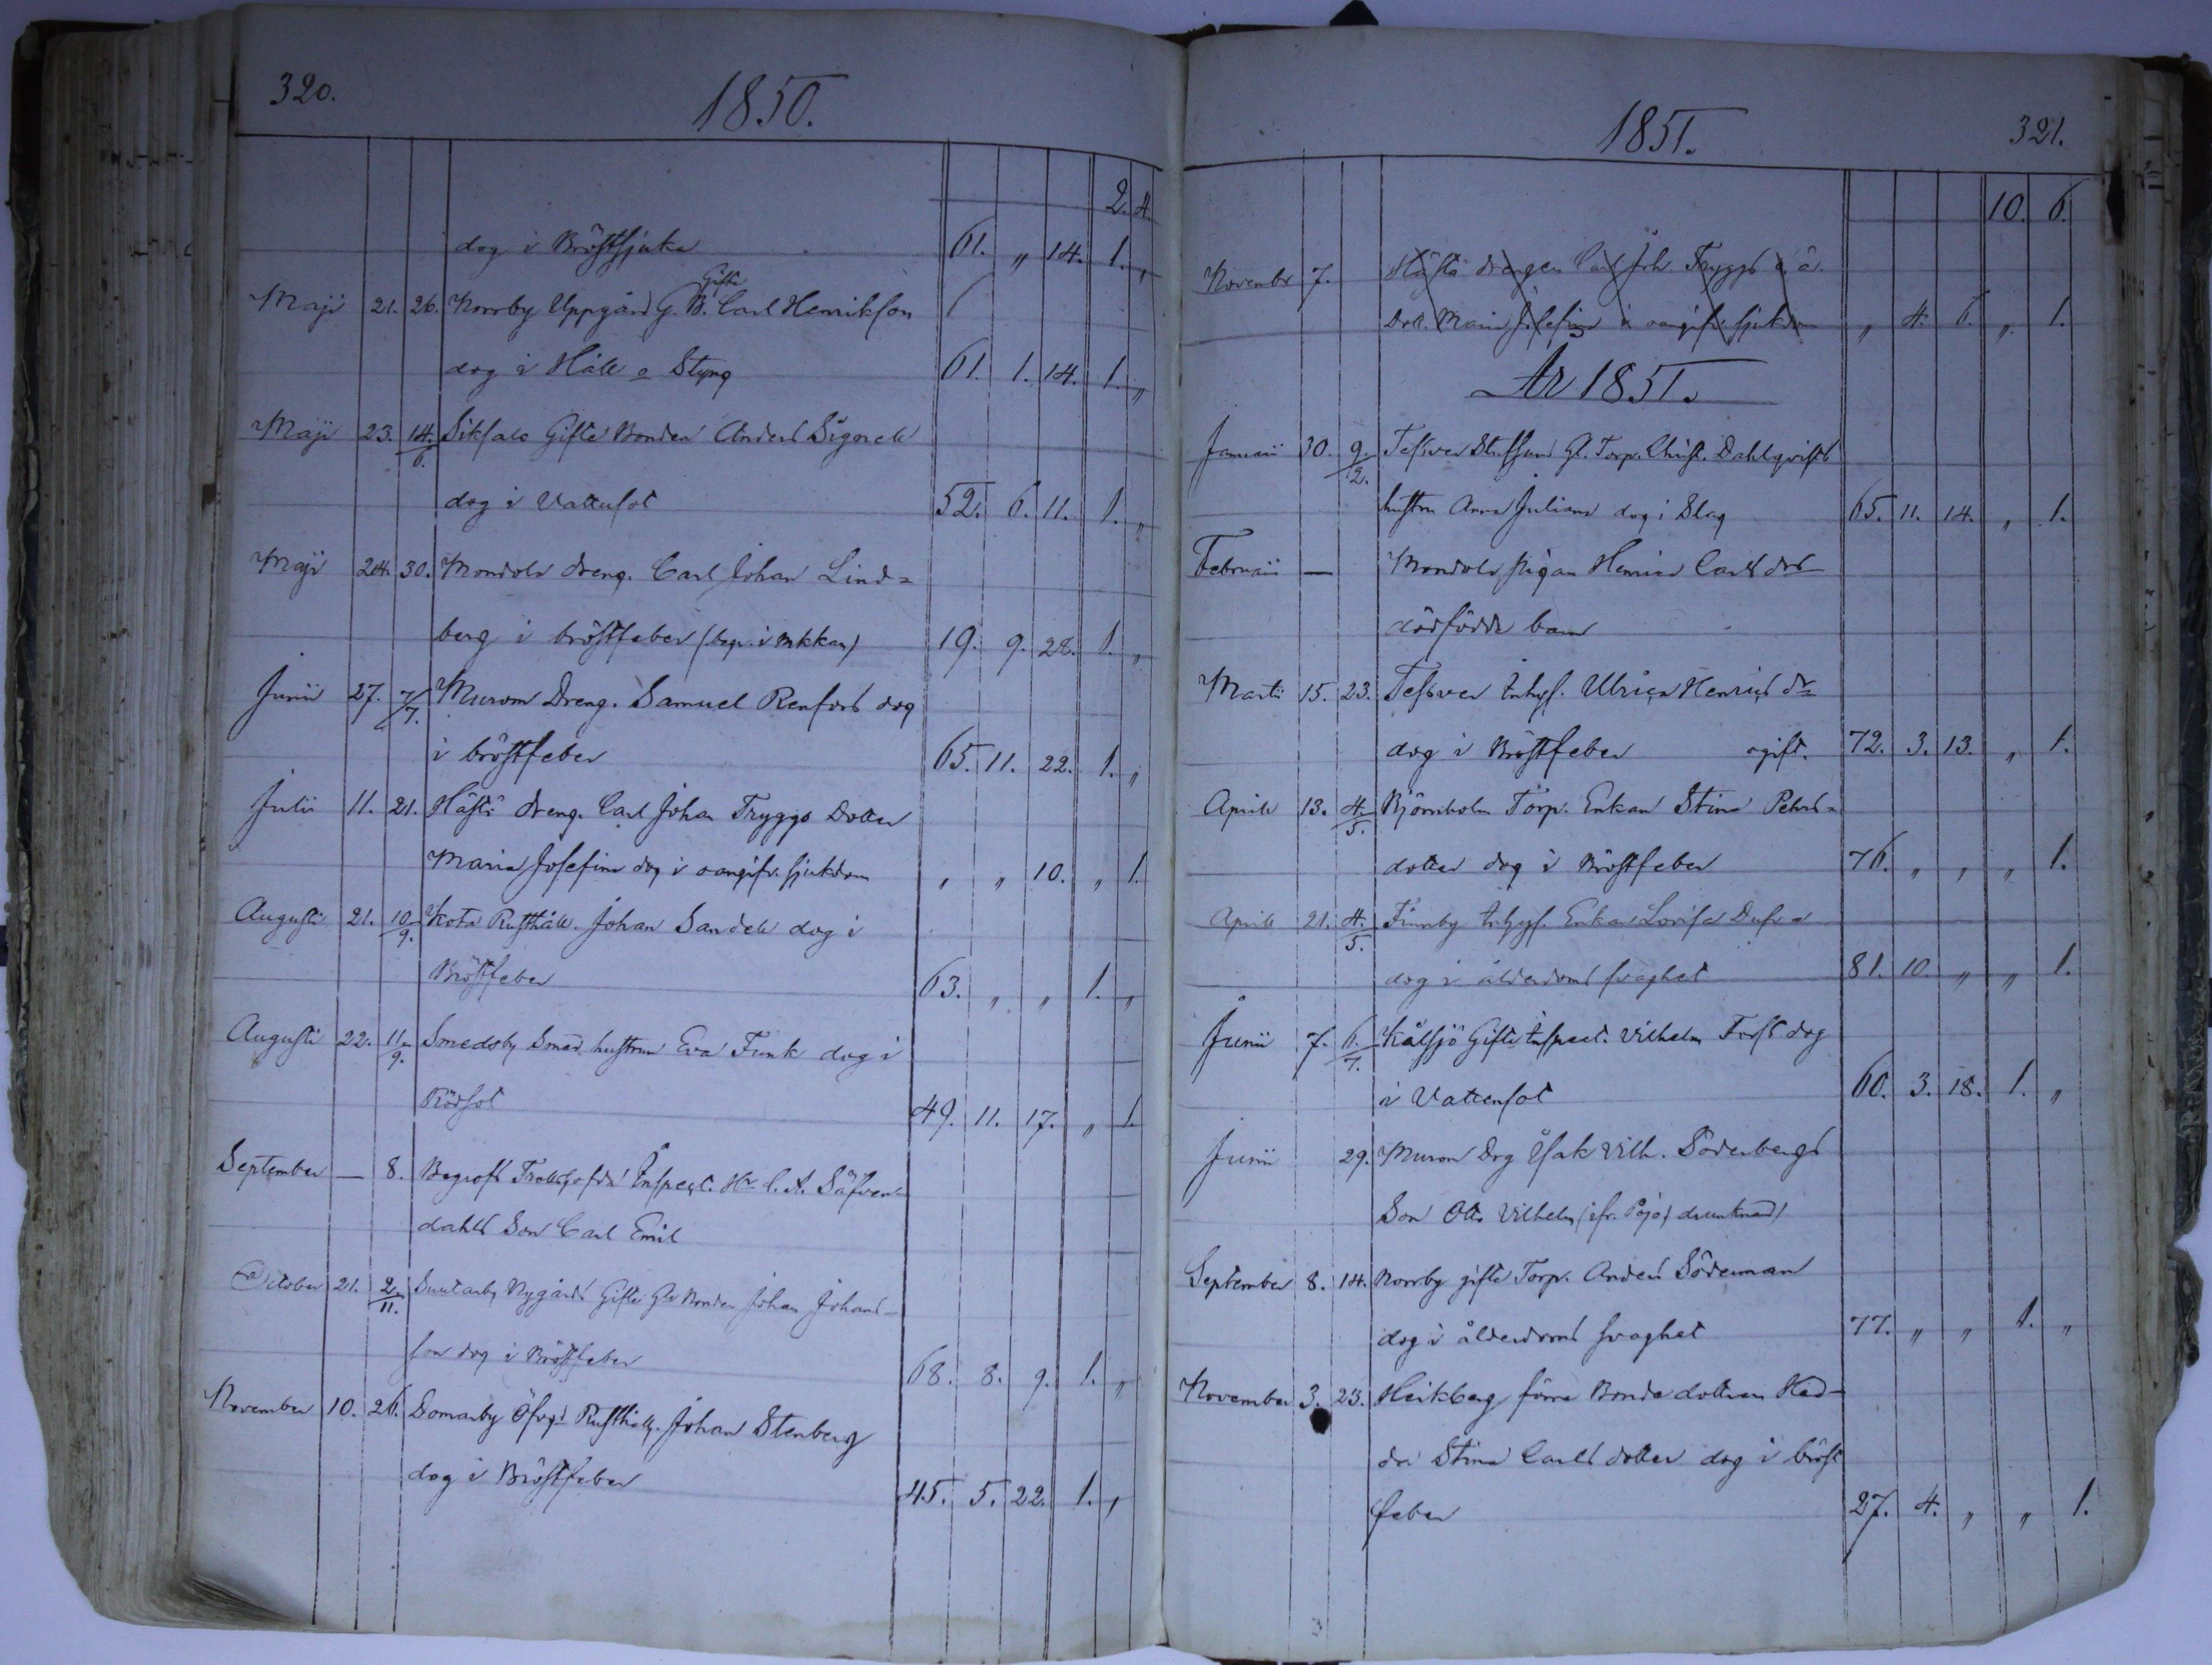 320.
1850.
2. 4.
dog i Bröstsjuka 61. " 14. 1. "
Gifte
Maji 21. 26. Norrby Uppgård G. B. Carl Henrikson
dog i Håll o Styng 61. 1. 14. 1. "
Maji 23. 14/6. Siksalo Gifte Bonden Anders Sigorell
dog i Vattusot 52. 6. 11. 1. "
Maji 24. 30. Mondola dreng. Carl Johan Lind=
berg i bröstfeber (begr. i 19. 9. 28. 1. "
Junii 27. 7/7. Murom Dreng. Samuel Renfors dog
i bröstfeber 65. 11. 22. 1. "
Julii 11. 21. Hästö dreng. Carl Johan Tryggs Dotter
Maria Josefina dog i oangifv. sjukdom " " 10. " 1.
Augusti 21. 10/9. Kota Rusthåll. Johan Sandell dog i
Bröstfeber 63. " " 1. "
Augusti 22. 11/9. Smedsby Smed hustrun Eva Funk dog i
Rödsot 49. 11. 17. " 1.
September — 8. Begrofs Inspect. Hr C. A. Säfven-
dahls Son Carl Emil
October 21. 2/11. Nygårds Gifte Bonden Johan Johans-
son dog i Bröstfeber 68. 8. 9. 1. "
November 10. 26. Domarby Öfvgd Rusthåll. Johan Stenberg
dog i Bröstfeber 45. 5. 22. 1. "
1851.
321.
10. 6.
Novembr 7. Hästö drengen Carl Joh. Tryggs
Dott. Maria Josefina i oangifv. sjukdom " 4. 6. " 1.
År 1851.
Januarii 30. 9/2. Teffver Gl. Torp. Christ. Dahlqvists
hustru Anna Juliana dog i Slag 65. 11. 14. " 1.
Februarii — Mondola pigan Henrica Carlsdrs
dödfödda barn
Martii 15. 23. Teffver Inhys. Ulrica Henricsdr
dog i Bröstfeber ogift. 72. 3. 13. " 1.
Aprill 13. 4/5. Björnholm Torp. Enkan Stina Pehrs-
dotter dog i Bröstfeber 76. " " " 1.
Aprill 21. 4/5. Finnby Inhys. Enkan Lovisa Dufva
dog i ålderdoms svaghet 81. 10. " " 1.
Junii 7. 6/7. Kålsjö Gifte Inspect. Vilhelm Forss dog
i Vattensot 60. 3. 18. 1. "
Junii 29. Muron Drg Isak Vilh. Söderbergs
Son Otto Vilhelm (ifr. Pojo) drunknad)
September 8. 14. Norrby gifte Torp. Anders Söderman
dog i ålderdoms svaghet 77. " " 1. "
November 3. 23. Heikberg förra Bonde dottren Hed-
da Stina Carlsdotter dog i bröst
feber 27. 4. " " 1.